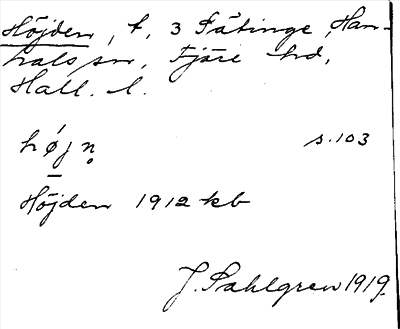 Höjden, t. 3 Fåtinge, Han-
hals sn, Fjäre hd,
Hall. l.
hǿjn̥ s. 103
Höjden 1912 kb
J. Sahlgren 1919.